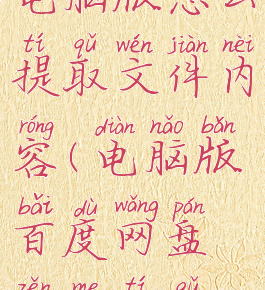 电脑版怎么
tí qǔ wén jiàn nèi
提取文件内
róng diàn nǎo bǎn
容(电脑版
bǎi dù wǎng pán
百度网盘
zěn me tí qǔ